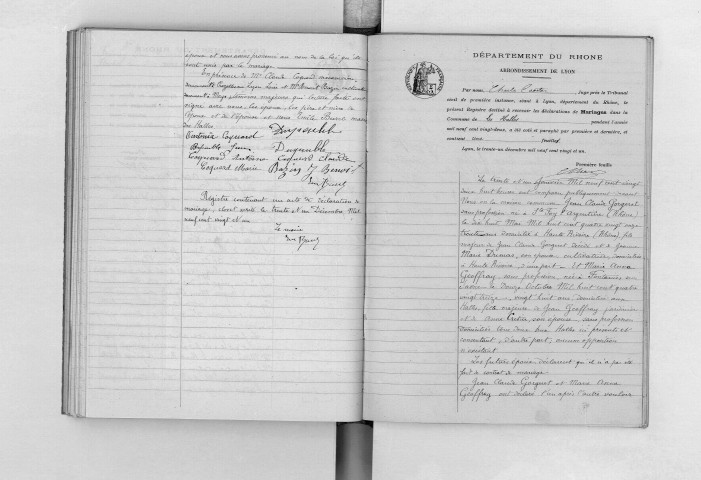 époux et nous avons prononcé au nom de la loi qu'ils
sont unis par le mariage.
En présence de Mr Claude Coquard
Lyon
majeurs qui lecture faite ont
signé avec nous, les époux, les père et mère de
l'époux et de l'épouse et nous Emile Brun maire
des Halles
Victorine Coquard Dupeuble
Dupeuble Jean Dupeuble
Coquard Antoine Coquard Claude
Coquard Marie Bazin J Benoit
Registre contenant un acte de déclaration de
mariage, clos et arrêté le trente et un Décembre Mil
neuf cent vingt et un
Le maire
DÉPARTEMENT DU RHONE
ARRONDISSEMENT DE LYON
Par nous Charles Juge près le Tribunal
civil de première instance, séant à Lyon, département du Rhône, le
présent Registre destiné à recevoir les déclarations de Mariages dans la
Commune de Les Halles pendant l'année
mil neuf cent vingt-deux, a été coté et paraphé par première et dernière, et
contient feuillets
Lyon, le trente-un décembre mil neuf cent vingt et un.
Première feuille
Le trente et un Mil neuf cent vingt
deux huit heures ont comparu publiquement devant
Nous en la maison commune Jean Claude Gorgeret
sans profession né à Ste Foy l'Argentière (Rhône)
le dix huit Mai Mil huit cent quatre vingt onze
domicilié à Haute Rivoire (Rhône), fils
majeur de Jean Claude Gorgeret décédé et de Jeanne
Marie Damas, son épouse, cultivatrice, domiciliée
à Haute Rivoire, d'une part. Et Maria Anna
Geoffray sans profession, née à Fontaines sur
Saône le Douze Octobre Mil huit cent quatre
vingt treize, vingt huit ans, domiciliée aux
Halles, fille majeure de Jean Geoffray jardinier
et de Anna son épouse, sans profession
domiciliés tous deux aux Halles ici présents et
consentant, d'autre part, aucune opposition
n'existant
Les futurs époux déclarent qu'il n'a pas été
fait de contrat de mariage
Jean Claude Gorgeret et Maria Anna
Geoffray ont déclaré l'un après l'autre vouloir